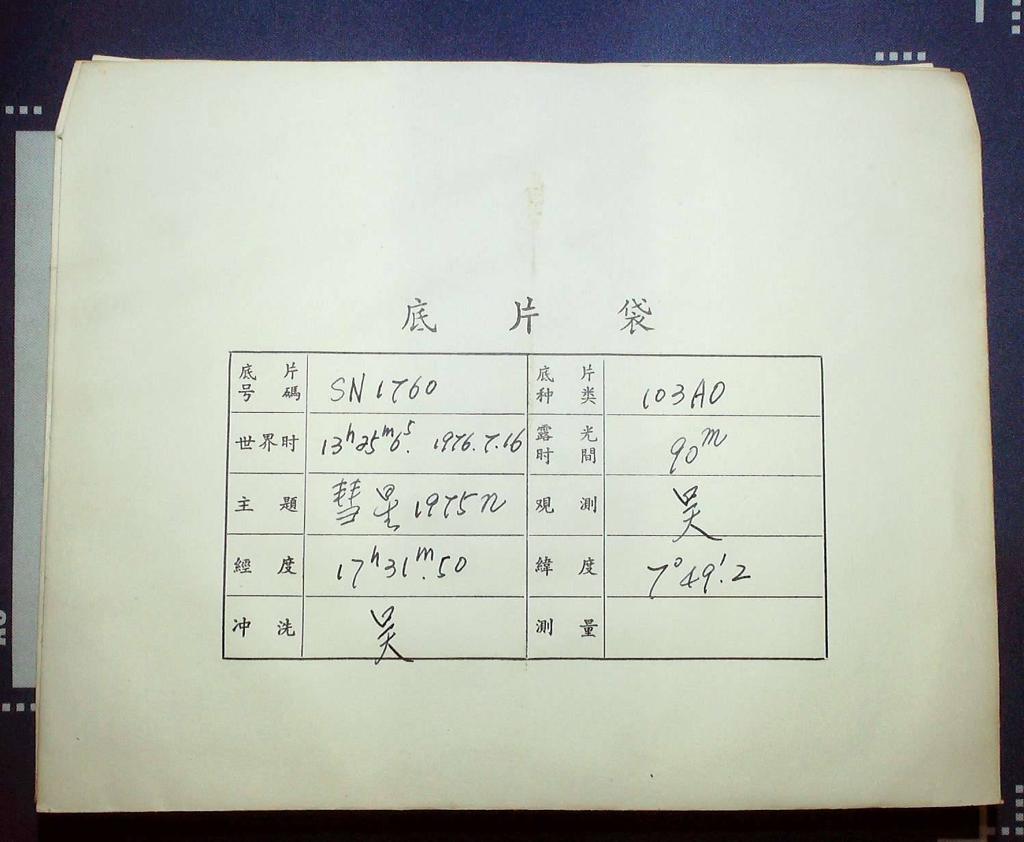 底片袋
底片号碼 SN1760 底片种类 103AO
世界时 13h25m6s. 1976.7.16 露光时間 90m
主題 彗星1975n 观測 吴
經度 17h31m.50 緯度 7°49'.2
冲洗 吴 測量